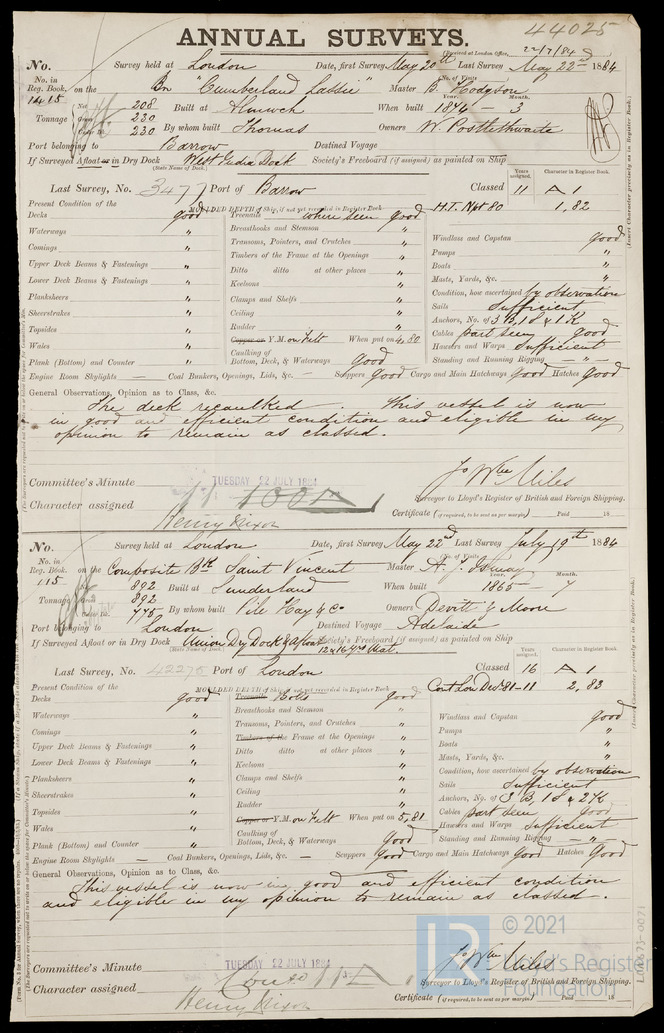 44025
ANNUAL SURVEYS.
(Received at London Office, 22/7/84
No. Survey held at London Date, first Survey May 20th Last Survey May 22nd 1884
No. in Reg. Book. 1415 on the Bn "Cumberland Lassie" (No. of Visits Master B. Hodgson
Tonnage Net 208 Built at Amlwch When built Year. 1874 Month. 3
Gross 230
230 By whom built Thomas Owners W. Postlethwaite
Port belonging to Barrow Destined Voyage
If Surveyed Afloat or in Dry Dock West India Dock Society's Freeboard (if assigned) as painted on Ship
(State Name of Dock.)
Last Survey, No. 3477 Port of Barrow Classed Years assigned. 11 Character in Register Book. A 1
H.T. Npt 80 1,82
Present Condition of the MOULDED DEPTH of Ship, if not yet recorded in Register Book
Decks good Treenails where seen good
Waterways " Breasthooks and Stemson " Windlass and Capstan good
Comings " Transoms, Pointers, and Crutches " Pumps "
Upper Deck Beams & Fastenings " Timbers of the Frame at the Openings " Boats "
Lower Deck Beams & Fastenings " Ditto ditto at other places " Masts, Yards, &c. "
Planksheers " Keelsons " Condition, how ascertained by observation
Sheerstrakes " Clamps and Shelfs " Sails Sufficient
Topsides " Ceiling " Anchors, No. of 3 B, 1 S & 1 K
Wales " Rudder " Cables part seen good
Copper or Y.M. on Felt When put on 4,80 Hawsers and Warps Sufficient
Plank (Bottom) and Counter " Caulking of Bottom, Deck, & Waterways good Standing and Running Rigging "
Engine Room Skylights — Coal Bunkers, Openings, Lids, &c. — Scuppers good Cargo and Main Hatchways good Hatches good
General Observations, Opinion as to Class, &c.
The deck recaulked. This vessel is now
in good and efficient condition and eligible in my
opinion to remain as classed.
Committee's Minute TUESDAY 22 JULY 1884
Character assigned 100A Jo Wm Miles
Surveyor to Lloyd's Register of British and Foreign Shipping.
Henry Dixon Certificate (if required, to be sent as per margin) Paid 18
No. Survey held at London Date, first Survey May 22nd Last Survey July 19th 1884
No. in Reg. Book. 115 on the Composite Bk Saint Vincent (No. of Visits Master
892 Built at Sunderland When built Year. 1865 Month. 7
Tonnage 892
775 By whom built Pile Hay & Co Owners Devitt & Moore
Port belonging to London Destined Voyage Adelaide
If Surveyed Afloat or in Dry Dock Union Dry Dock & afloat Society's Freeboard (if assigned) as painted on Ship
(State Name of Dock.)
Last Survey, No. 42276 Port of London Classed Years assigned. 16 Character in Register Book. A 1
Cont Lon Dec 81-11 2,83
Present Condition of the MOULDED DEPTH of Ship, if not yet recorded in Register Book
Decks good Treenails Bolts good
Waterways " Breasthooks and Stemson " Windlass and Capstan good
Comings " Transoms, Pointers, and Crutches " Pumps "
Upper Deck Beams & Fastenings " Timbers of the Frame at the Openings " Boats "
Lower Deck Beams & Fastenings " Ditto ditto at other places " Masts, Yards, &c. "
Planksheers " Keelsons " Condition, how ascertained by observation
Sheerstrakes " Clamps and Shelfs " Sails Sufficient
Topsides " Ceiling " Anchors, No. of 3 B, 1 S & 2 K
Wales " Rudder " Cables part seen good
Copper or Y.M. on Felt When put on 5,81 Hawsers and Warps Sufficient
Plank (Bottom) and Counter " Caulking of Bottom, Deck, & Waterways good Standing and Running Rigging "
Engine Room Skylights — Coal Bunkers, Openings, Lids, &c. — Scuppers good Cargo and Main Hatchways good Hatches good
General Observations, Opinion as to Class, &c.
This vessel is now in good and efficient condition
and eligible in my opinion to remain as classed.
© 2021
LR Lloyd's Register Foundation
Committee's Minute TUESDAY 22 JULY 1884
Character assigned Jo Wm Miles
Surveyor to Lloyd's Register of British and Foreign Shipping.
Henry Dixon Certificate (if required, to be sent as per margin) Paid 18